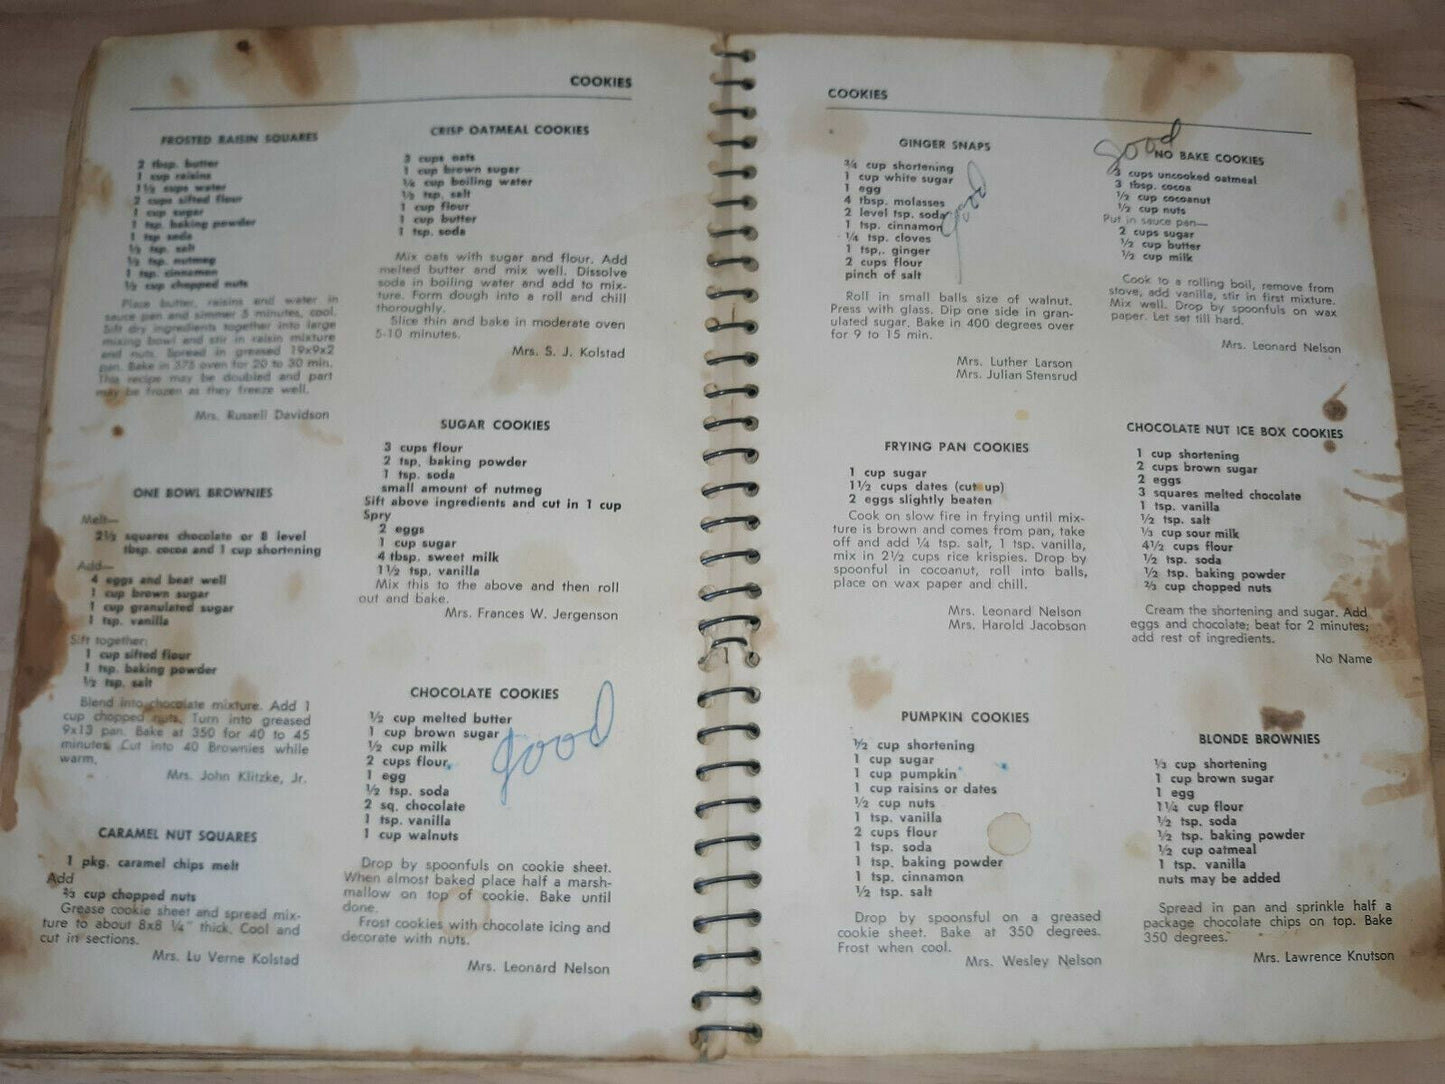 COOKIES
FROSTED RAISIN SQUARES
2 tbsp. butter
1 cup raisins
1½ cups water
2 cups sifted flour
1 cup sugar
1 tsp. baking powder
1 tsp soda
½ tsp. salt
½ tsp. nutmeg
1 tsp. cinnamon
½ cup chopped nuts
Place butter, raisins and water in
sauce pan and simmer 5 minutes, cool.
Sift dry ingredients together into large
mixing bowl and stir in raisin mixture
and nuts. Spread in greased 19x9x2
pan. Bake in 375 oven for 20 to 30 min.
This recipe may be doubled and part
may be frozen as they freeze well.
Mrs. Russell Davidson
ONE BOWL BROWNIES
Melt—
2½ squares chocolate or 8 level
tbsp. cocoa and 1 cup shortening
Add—
4 eggs and beat well
1 cup brown sugar
1 cup granulated sugar
1 tsp. vanilla
Sift together:
1 cup sifted flour
1 tsp. baking powder
½ tsp. salt
Blend into chocolate mixture. Add 1
cup chopped nuts. Turn into greased
9x13 pan. Bake at 350 for 40 to 45
minutes. Cut into 40 Brownies while
warm.
Mrs. John Klitzke, Jr.
CARAMEL NUT SQUARES
1 pkg. caramel chips melt
Add
⅔ cup chopped nuts
Grease cookie sheet and spread mix-
ture to about 8x8 ¼" thick. Cool and
cut in sections.
Mrs. Lu Verne Kolstad
CRISP OATMEAL COOKIES
3 cups oats
1 cup brown sugar
¼ cup boiling water
½ tsp. salt
1 cup flour
1 cup butter
1 tsp. soda
Mix oats with sugar and flour. Add
melted butter and mix well. Dissolve
soda in boiling water and add to mix-
ture. Form dough into a roll and chill
thoroughly.
Slice thin and bake in moderate oven
5-10 minutes.
Mrs. S. J. Kolstad
SUGAR COOKIES
3 cups flour
2 tsp. baking powder
1 tsp. soda
small amount of nutmeg
Sift above ingredients and cut in 1 cup
Spry
2 eggs
1 cup sugar
4 tbsp. sweet milk
1½ tsp. vanilla
Mix this to the above and then roll
out and bake.
Mrs. Frances W. Jergenson
CHOCOLATE COOKIES
½ cup melted butter
1 cup brown sugar
½ cup milk
2 cups flour
1 egg
½ tsp. soda
2 sq. chocolate
1 tsp. vanilla
1 cup walnuts
good
Drop by spoonfuls on cookie sheet.
When almost baked place half a marsh-
mallow on top of cookie. Bake until
done.
Frost cookies with chocolate icing and
decorate with nuts.
Mrs. Leonard Nelson
COOKIES
GINGER SNAPS
¾ cup shortening
1 cup white sugar
1 egg
4 tbsp. molasses
2 level tsp. soda
1 tsp. cinnamon
¼ tsp. cloves
1 tsp,. ginger
2 cups flour
pinch of salt
good
Roll in small balls size of walnut.
Press with glass. Dip one side in gran-
ulated sugar. Bake in 400 degrees over
for 9 to 15 min.
Mrs. Luther Larson
Mrs. Julian Stensrud
FRYING PAN COOKIES
1 cup sugar
1½ cups dates (cut up)
2 eggs slightly beaten
Cook on slow fire in frying until mix-
ture is brown and comes from pan, take
off and add ¼ tsp. salt, 1 tsp. vanilla,
mix in 2½ cups rice krispies. Drop by
spoonful in cocoanut, roll into balls,
place on wax paper and chill.
Mrs. Leonard Nelson
Mrs. Harold Jacobson
PUMPKIN COOKIES
½ cup shortening
1 cup sugar
1 cup pumpkin
1 cup raisins or dates
½ cup nuts
1 tsp. vanilla
2 cups flour
1 tsp. soda
1 tsp. baking powder
1 tsp. cinnamon
½ tsp. salt
Drop by spoonsful on a greased
cookie sheet. Bake at 350 degrees.
Frost when cool.
Mrs. Wesley Nelson
good
NO BAKE COOKIES
3 cups uncooked oatmeal
3 tbsp. cocoa
½ cup cocoanut
½ cup nuts
Put in sauce pan—
2 cups sugar
½ cup butter
½ cup milk
Cook to a rolling boil, remove from
stove, add vanilla, stir in first mixture.
Mix well. Drop by spoonfuls on wax
paper. Let set till hard.
Mrs. Leonard Nelson
CHOCOLATE NUT ICE BOX COOKIES
1 cup shortening
2 cups brown sugar
2 eggs
3 squares melted chocolate
1 tsp. vanilla
½ tsp. salt
⅓ cup sour milk
4½ cups flour
½ tsp. soda
½ tsp. baking powder
⅔ cup chopped nuts
Cream the shortening and sugar. Add
eggs and chocolate; beat for 2 minutes;
add rest of ingredients.
No Name
BLONDE BROWNIES
⅓ cup shortening
1 cup brown sugar
1 egg
1¼ cup flour
½ tsp. soda
½ tsp. baking powder
½ cup oatmeal
1 tsp. vanilla
nuts may be added
Spread in pan and sprinkle half a
package chocolate chips on top. Bake
350 degrees.
Mrs. Lawrence Knutson